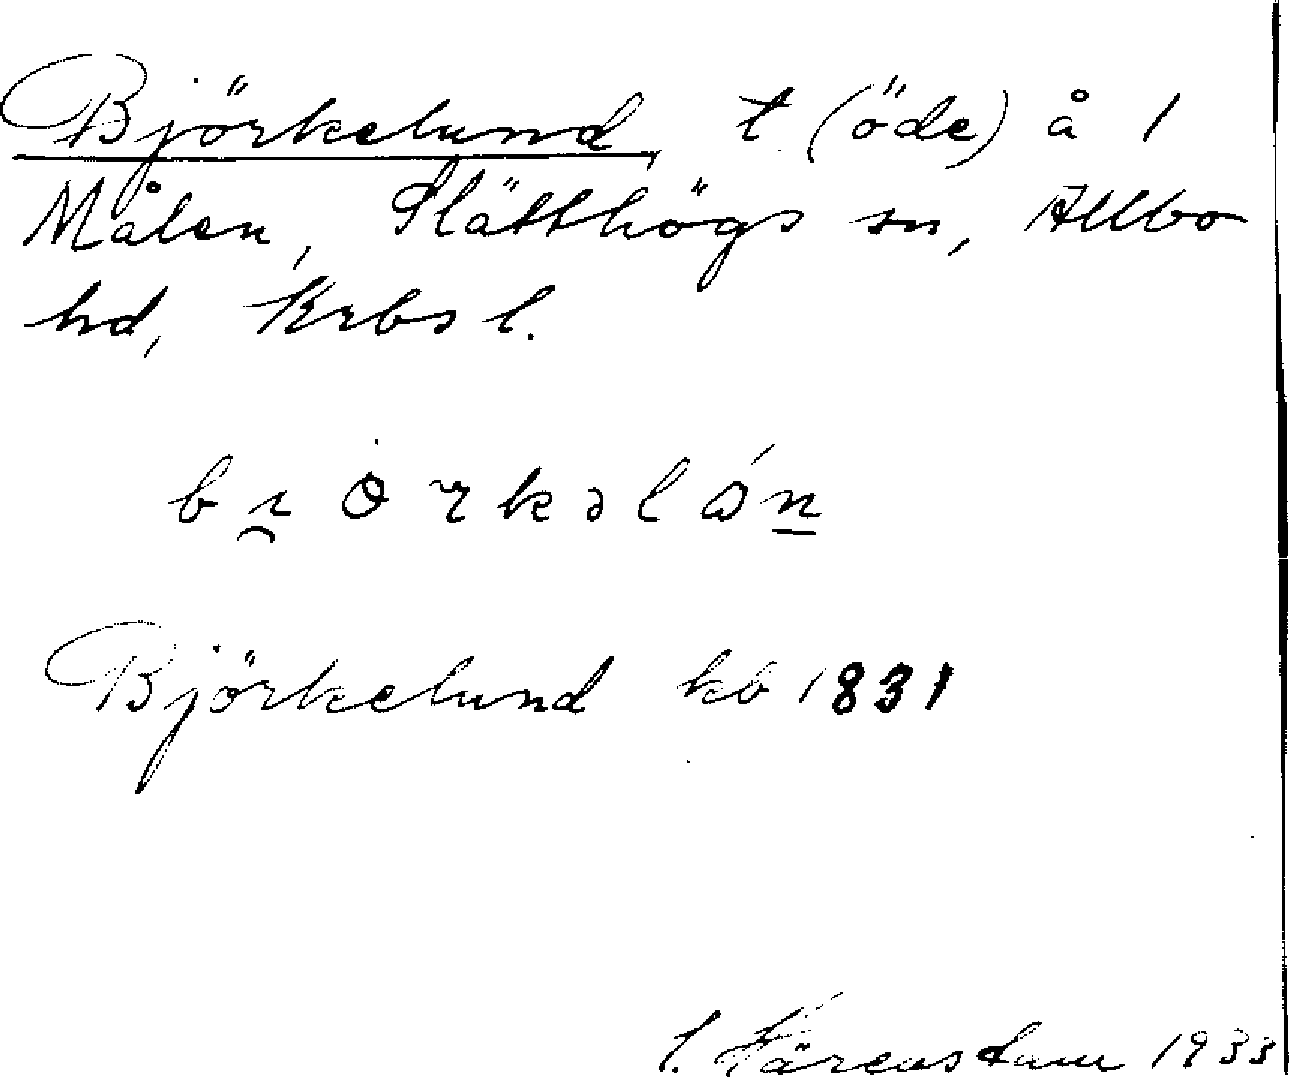 Björkelund, t (öde) å 1
Målen, Slätthögs sn, Allbo
hd, Krbs l.
Björkelund kb 1831
1933